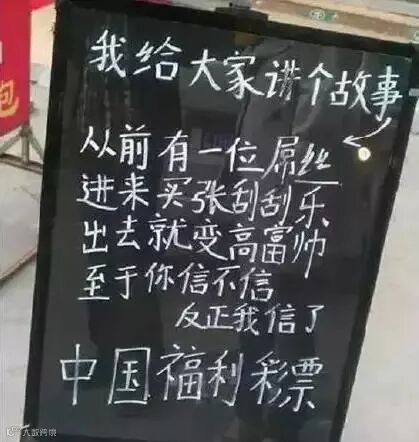 我给大家讲个故事
从前有一位屌丝
进来买张刮刮乐
出去就变高富帅
至于你信不信
反正我信了
中国福利彩票
包
大数跨境